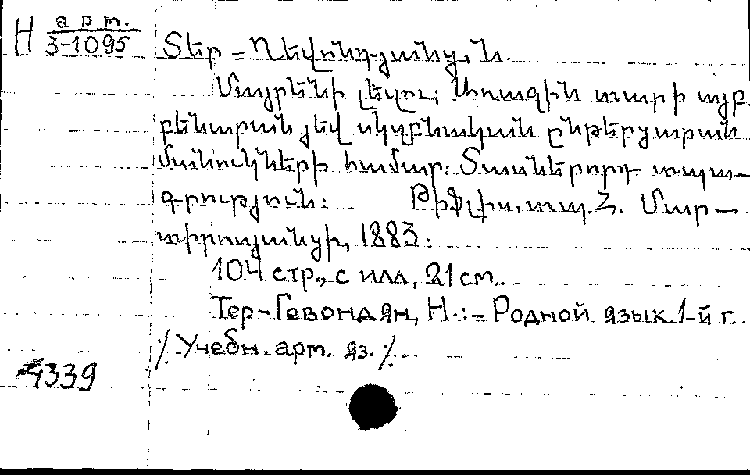 Н арм.
3-1095
Տեր-Ղեվոնդյանց, Ն
Մայրենի լեզու: Առաջին տարի այբ
բենարան յեվ սկզբնական ընթերցարան
մանուկների համար: Տասներորդ տպա-
գրություն: Թիֆլիս, տպ. Հ. Մար-
տիրոսյանցի, 1883:
104 стр., с илл, 21 см.
Тер-Гевондян, Н.:- Родной язык 1-й г.
/Учебн. арм. яз./
4339